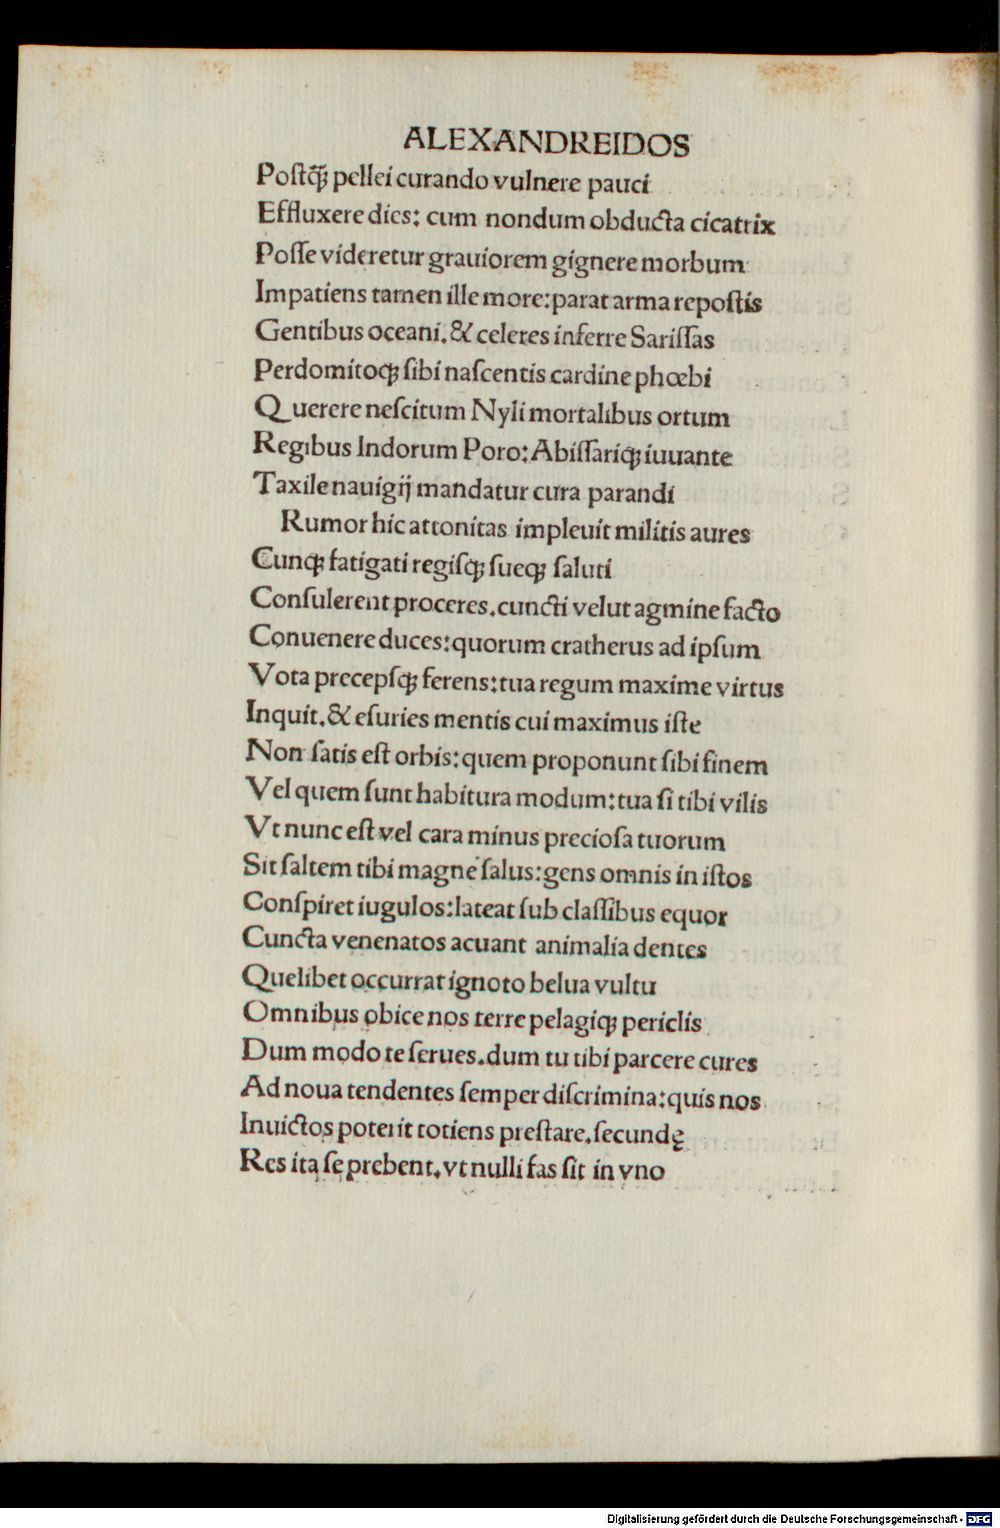 ALEXANDREIDOS
Poſtq̃ꝫ pellei curando vulnere pauci
Effluxere dies: cum nondum obducta cicatrix
Poſſe videretur grauiorem gignere morbum
Impatiens tamen ille more: parat arma repoſtis
Gentibus oceani. & celeres inferre Sariſſas
Perdomitoqꝫ ſibi naſcentis cardine phœbi
Querere neſcitum Nyli mortalibus ortum
Regibus Indorum Poro: Abiſſariqꝫ iuuante
Taxile nauigij mandatur cura parandi
Rumor hic attonitas impleuit militis aures
Cunqꝫ fatigati regiſqꝫ ſueqꝫ ſaluti
Conſulerent proceres. cuncti velut agmine facto
Conuenere duces: quorum cratherus ad ipſum
Vota precepſqꝫ ferens: tua regum maxime virtus
Inquit. & eſuries mentis cui maximus iſte
Non ſatis eſt orbis: quem proponunt ſibi finem
Vel quem ſunt habitura modum: tua ſi tibi vilis
Vt nunc eſt vel cara minus precioſa tuorum
Sit ſaltem tibi magne ſalus: gens omnis in iſtos
Conſpiret iugulos: lateat ſub claſſibus equor
Cuncta venenatos acuant animalia dentes
Quelibet occurrat ignoto belua vultu
Omnibus obice nos terre pelagiqꝫ periclis
Dum modo te ſerues. dum tu tibi parcere cures
Ad noua tendentes ſemper diſcrimina: quis nos
Inuictos poterit totiens preſtare. ſecundę
Res ita ſe prebent. vt nulli fas ſit in vno
Digitalisierung gefördert durch die Deutsche Forschungsgemeinschaft - DFG